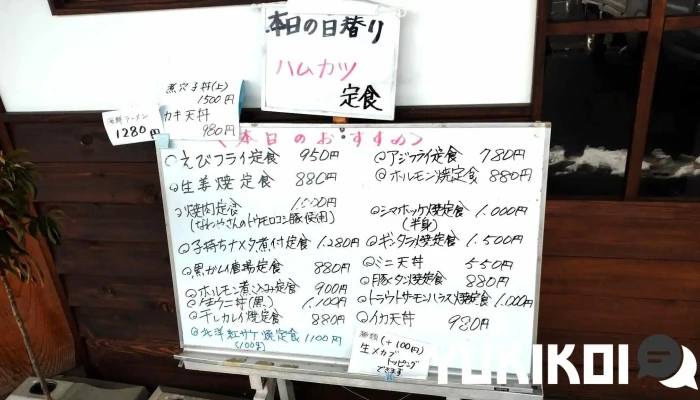 本日の日替り
ハムカツ
定食
煮穴子丼(上)
1500円
カキ天丼
980円
海鮮ラーメン
1280円
＜本日のおすすめ＞
○えびフライ定食 950円
◎生姜焼定食 880円
焼肉定食
(なわやさんのトウモロコシ豚使用)
◎子持ちナメタ煮付定食 1.280円
◎黒ガレイ唐揚定食 880円
◎ホルモン煮込み定食 900円
生ウニ丼(黒) 1,100円
◎干しカレイ焼定食 880円
◎北洋紅サケ焼定食 1100円
◎アジフライ定食 780円
◎ホルモン焼定食 880円
◎シマホッケ焼定食 1.000円
(半身)
◎ギンダラ焼定食 1.500円
◎ミニ天丼 550円
◎豚タン焼定食 880円
◎トラウトサーモンハラス焼定食 1.000円
◎イカ天丼 980円
麺類(+100円)
生メカブ
トッピング
できます
YURIKOI